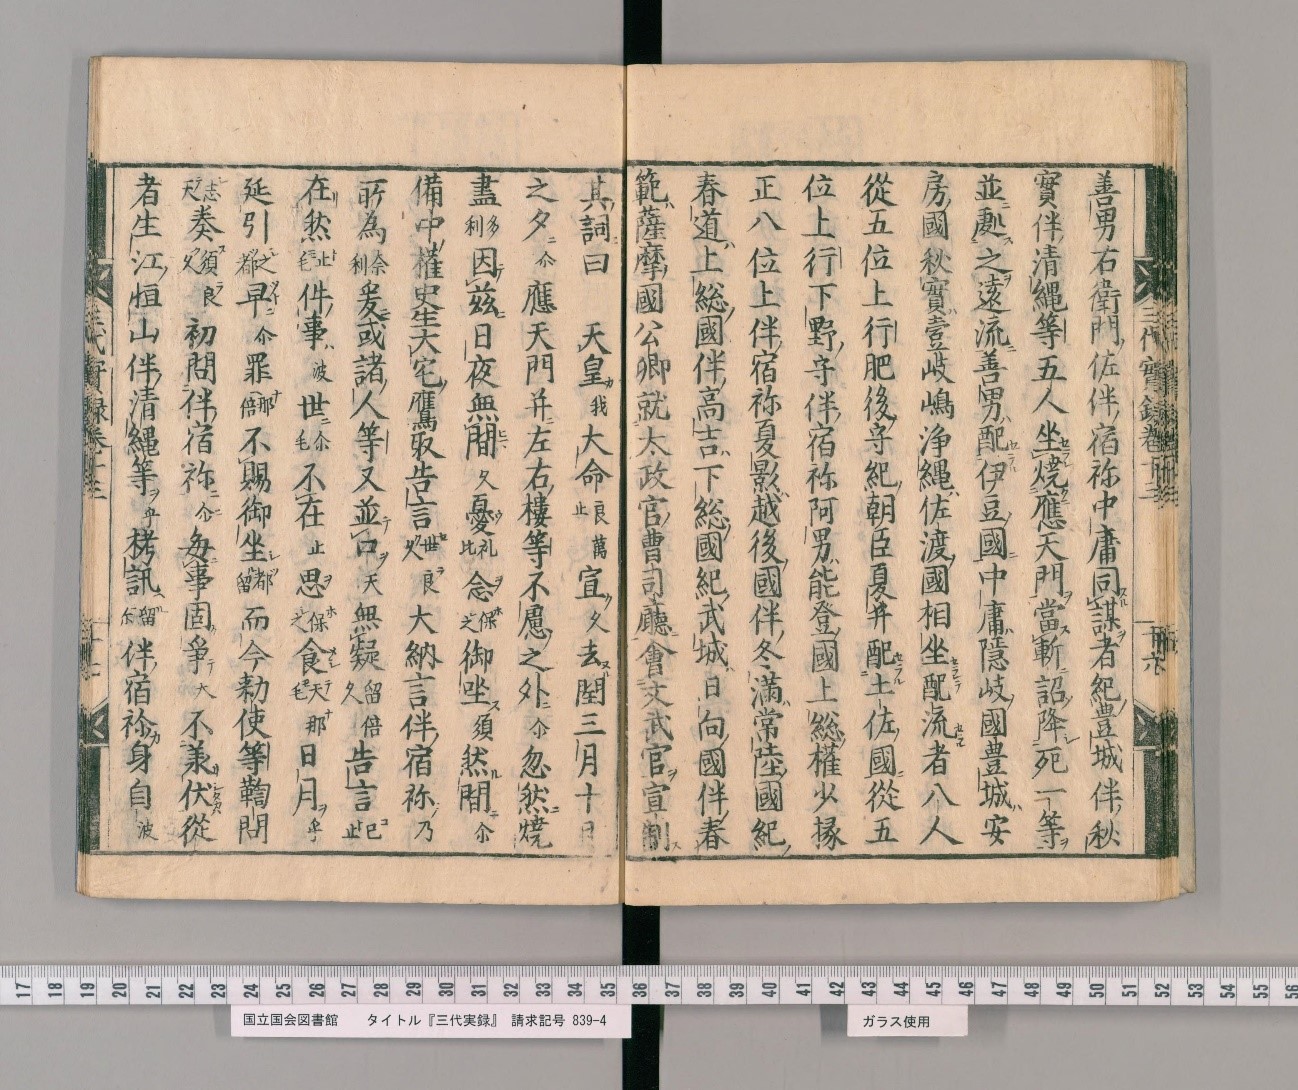 善男右衛門佐伴宿祢中庸同謀者紀豊城伴秋
實伴清縄等五人坐焼應天門當斬詔降死一等
並處之遠流善男配伊豆國中庸隠岐國豊城安
房國秋實壹岐嶋浄縄佐渡國相坐配流者八人
從五位上行肥後守紀朝臣夏井配土佐國從五
位上行下野守伴宿祢河男能登國上総權少掾
正八位上伴宿祢夏影越後國伴冬滿常陸國紀
春道上総國伴高吉下総國紀武城日向國伴春
範薩摩國公卿就太政官曹司廳會文武官宣制
其詞曰 天皇我大命良萬止宣久去閏三月十日
之夕尒應天門并左右樓等不慮之外尒忽然焼
盡多利因茲日夜無間久憂礼比念保之御坐須然間尒
備中權史生大宅鷹取告言世良久大納言伴宿祢乃
所為奈利爰或諸人等又並口天無疑留倍久告言己止
在然止毛件事波世尒毛不在止思保之食天毛那日月乎
延引之都早尒罪那倍不賜御坐都留而今勅使等鞫問
志天奏須良久初問伴宿祢尒毎事固爭天不承伏從
者生江恒山伴清縄等乎拷訊留尒伴宿祢身自波
三代實録巻十三
十六
國立国会図書館 タイトル『三代実録』 請求記号 839-4
ガラス使用
17 18 19 20 21 22 23 24 25 26 27 28 29 30 31 32 33 34 35 36 37 38 39 40 41 42 43 44 45 46 47 48 49 50 51 52 53 54 55 56